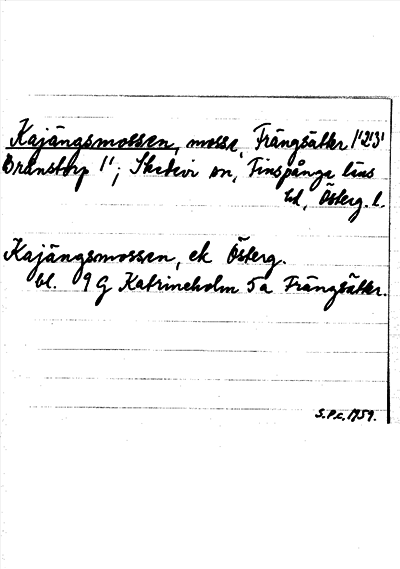 Kajängsmossen, mosse, Frängsätter 1'2'3'
Brånstorp 1'; Skedevi sn, Finspånga läns
hd, Österg. l.
Kajängsmossen, ek Österg.
bl. 9 G Katrineholm 5a Frängsätter.
S.P.c. 1959.